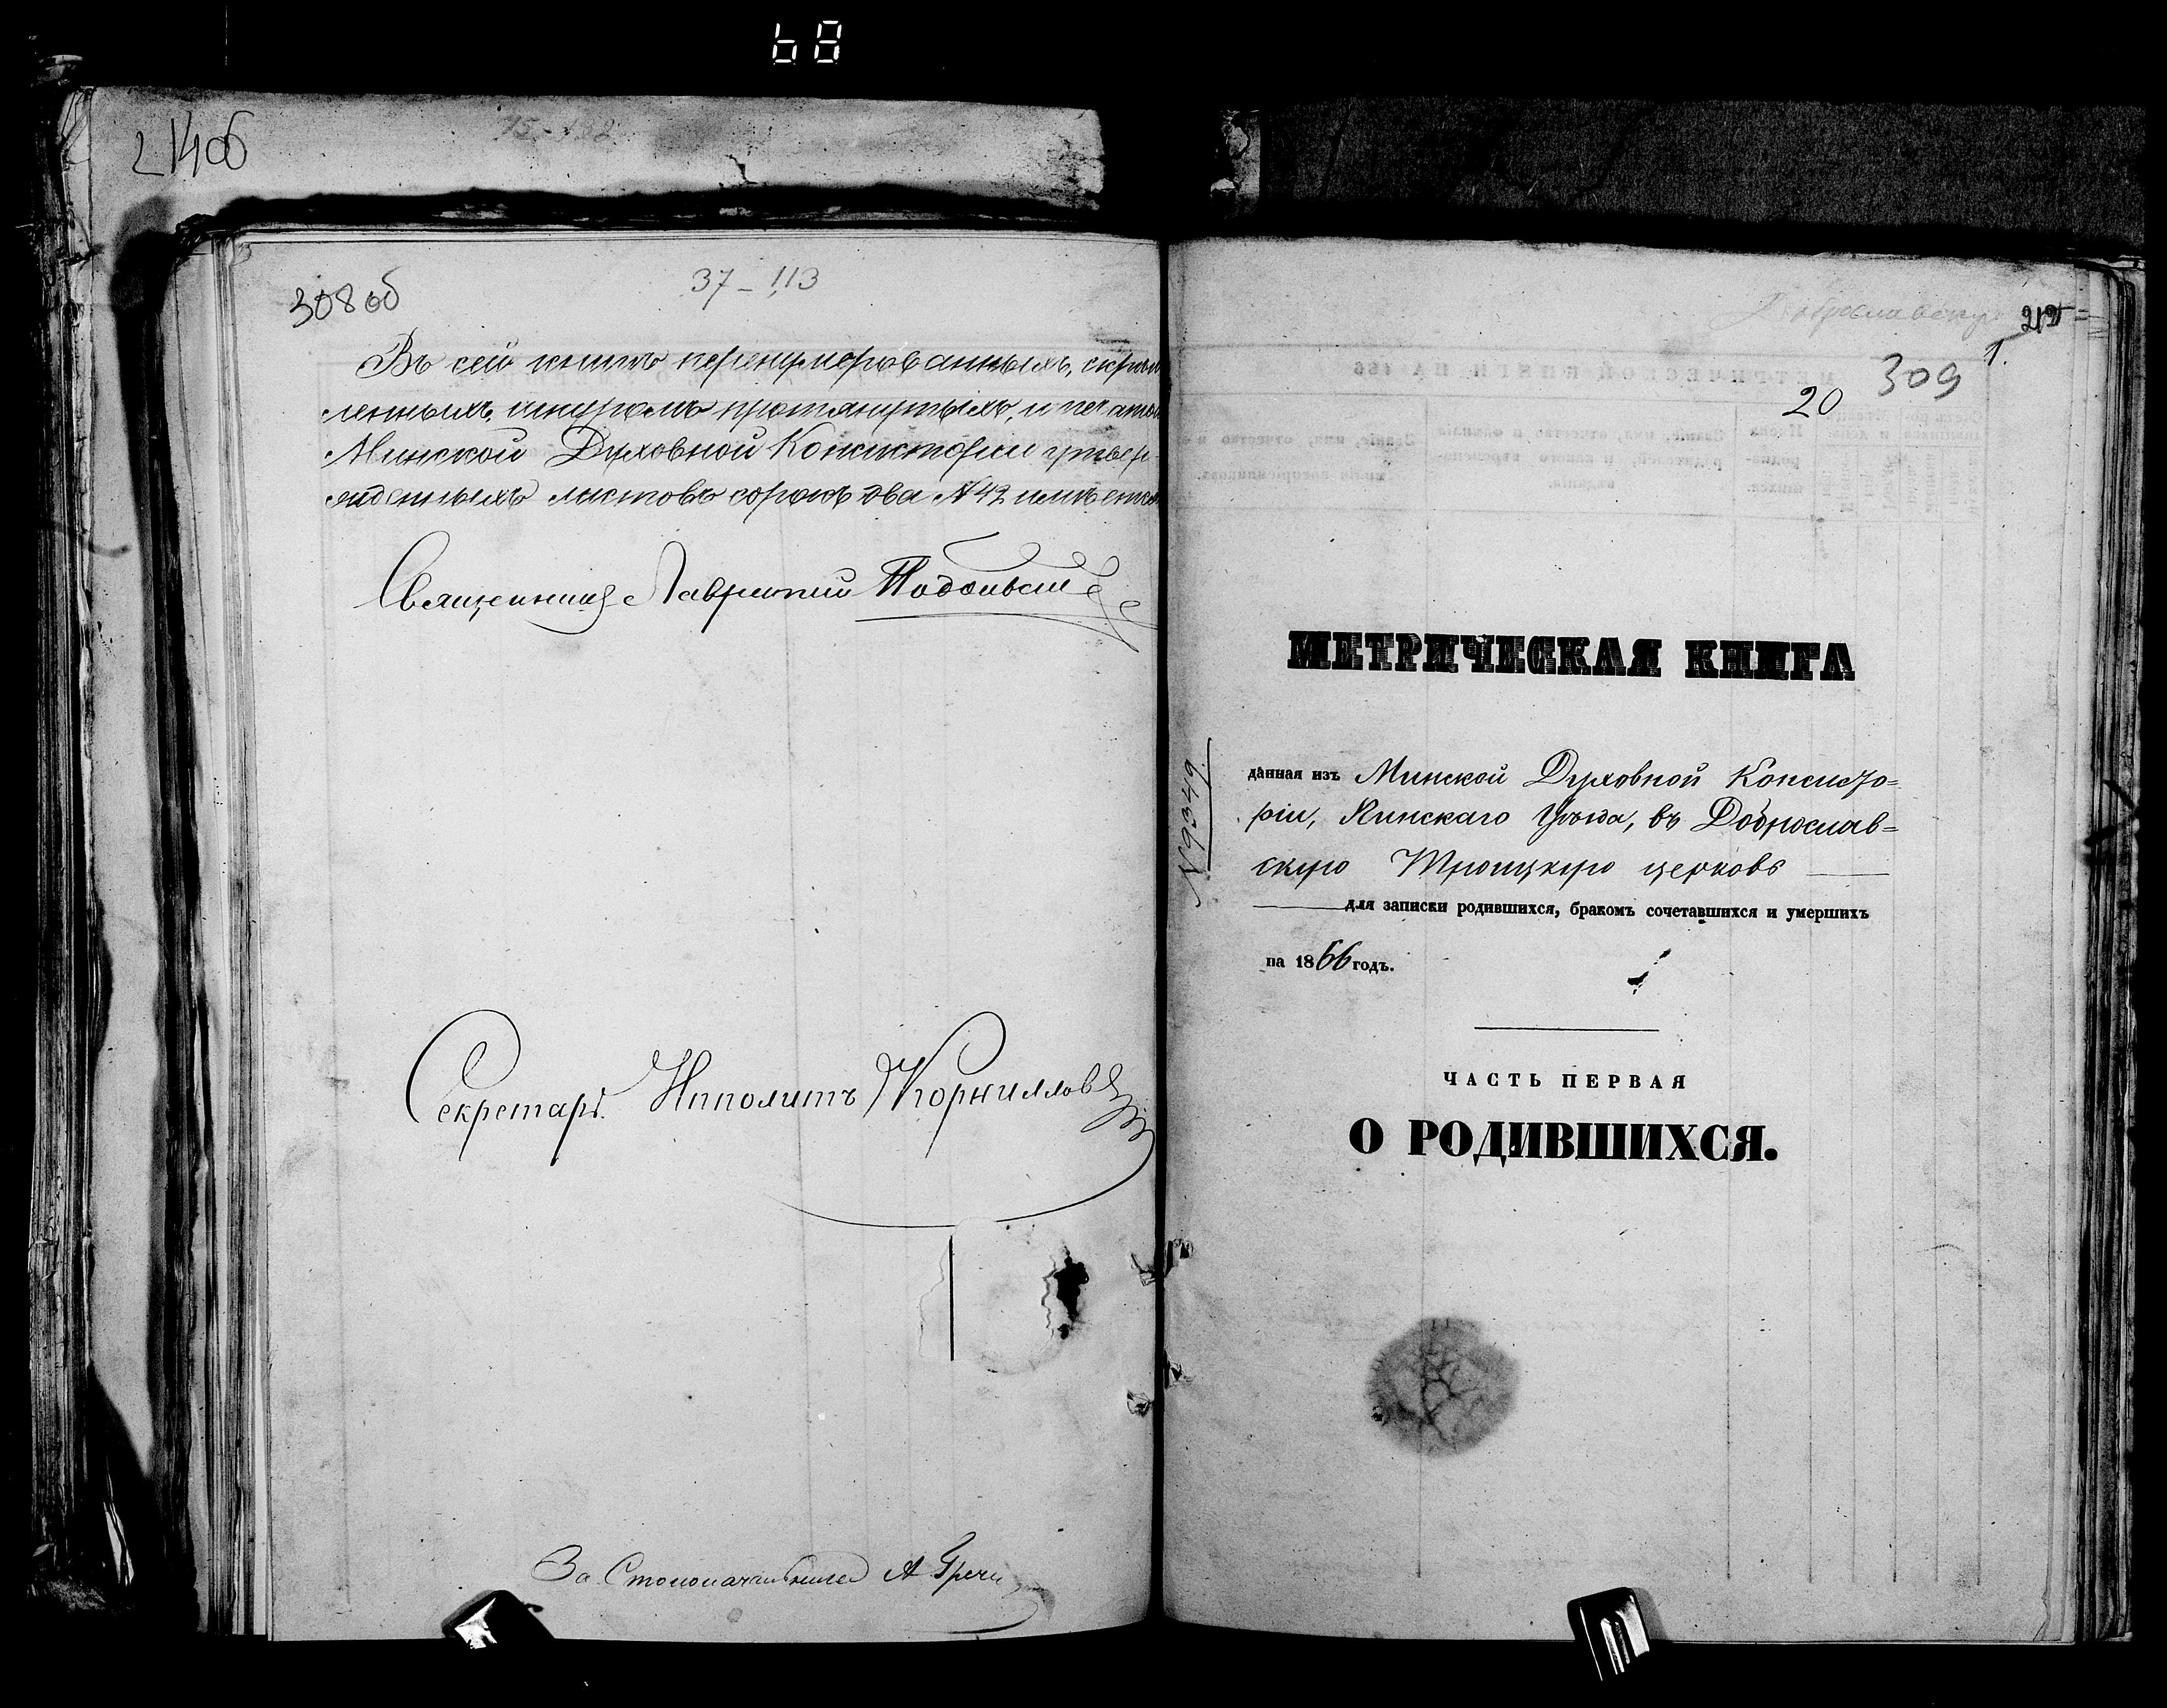 68
214об
308 об
37 – 113
Въ сей книгѣ перенумерованныхъ, скрѣп
ленныхъ, шнуромъ протянутыхъ, и печатью
Минской Духовной Консисторіи утвер
жденныхъ листовъ сорокъ два № 42 имѣется
Священникъ Лаврентій
Секретарь Ипполитъ Корниллов
За Столоначальника А
215
1.
309
20
МЕТРИЧЕСКАЯ КНИГА
№ 9349.
данная изъ Минской Духовной Консисто=
ріи, Пинскаго Уѣзда, въ Доброслав=
скую Троицкую церковь
для записки родившихся, бракомъ сочетавшихся и умершихъ
на 1866 годъ.
ЧАСТЬ ПЕРВАЯ
О РОДИВШИХСЯ.